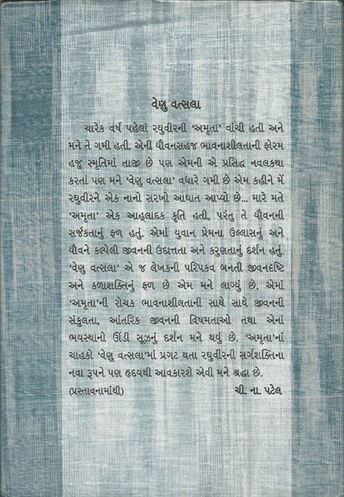 વેણુ વત્સલા
ચારેક વર્ષ પહેલાં રઘુવીરની 'અમૃતા' વાંચી હતી અને
મને તે ગમી હતી. એની યૌવનસહજ ભાવનાશીલતાની ફોરમ
હજુ સ્મૃતિમાં તાજી છે પણ એમની એ પ્રસિદ્ધ નવલકથા
કરતાં પણ મને 'વેણુ વત્સલા' વધારે ગમી છે એમ કહીને મેં
રઘુવીરને એક નાનો સરખો આઘાત આપ્યો છે... મારે મતે
'અમૃતા' એક આહ્લાદક કૃતિ હતી, પરંતુ તે યૌવનની
સર્જકતાનું ફળ હતું. એમાં યુવાન પ્રેમના ઉલ્લાસનું અને
યૌવને કલ્પેલી જીવનની ઉદાત્તતા અને કરુણતાનું દર્શન હતું.
'વેણુ વત્સલા' એ જ લેખકની પરિપકવ બનતી જીવનદષ્ટિ
અને કળાશક્તિનું ફળ છે એમ મને લાગ્યું છે. એમાં
'અમૃતા'ની રોચક ભાવનાશીલતાની સાથે સાથે જીવનની
સંકુલતા, આંતરિક જીવનની વિષમતાઓ તથા એનાં
ભયસ્થાનો ઊંડી સૂઝનું દર્શન મને થયું છે. 'અમૃતા'નાં
ચાહકો 'વેણુ વત્સલા'માં પ્રગટ થતા રઘુવીરની સર્ગશક્તિના
નવા રૂપને પણ હૃદયથી આવકારશે એવી મને શ્રદ્ધા છે.
(પ્રસ્તાવનામાંથી) ચી. ના. પટેલ